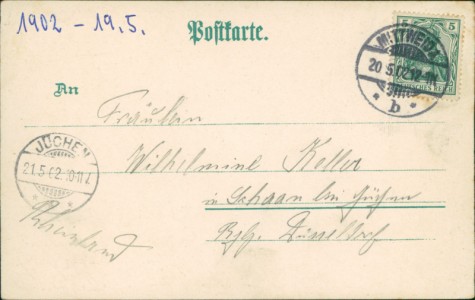 1902 - 19.5.
Postkarte.
5
MITTWEIDA
20.5.02.12-1N
* b *
An
Fräulein
Wilhelmine Keller
in Schaan bei Jüchen
Rgbz. Düsseldorf
JÜCHEN
21.5.02.10-11V.
Rheinland